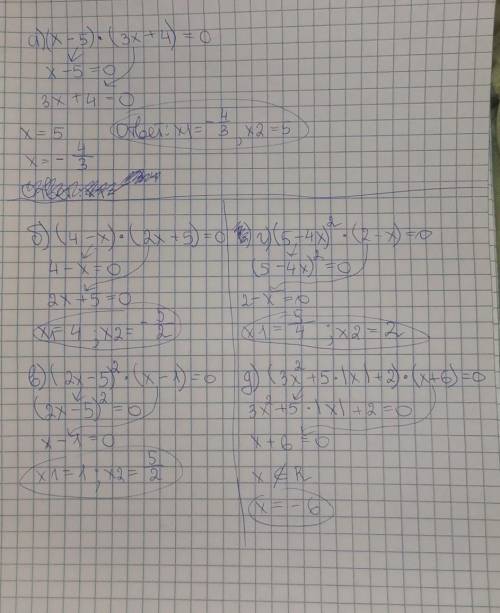 а) (x-5)·(3x+4)=0
x-5=0
3x+4=0
x=5
x=-4/3
Ответ: x1=-4/3, x2=5
б) (4-x)·(2x+5)=0
4-x=0
2x+5=0
x1=4; x2=-5/2
в) (2x-5)²·(x-1)=0
(2x-5)²=0
x-1=0
x1=1; x2=5/2
г) (5-4x)²·(2-x)=0
(5-4x)²=0
2-x=0
x1=5/4; x2=2
д) (3x²+5·|x|+2)·(x+6)=0
3x²+5·|x|+2=0
x+6=0
x∉R
x=-6